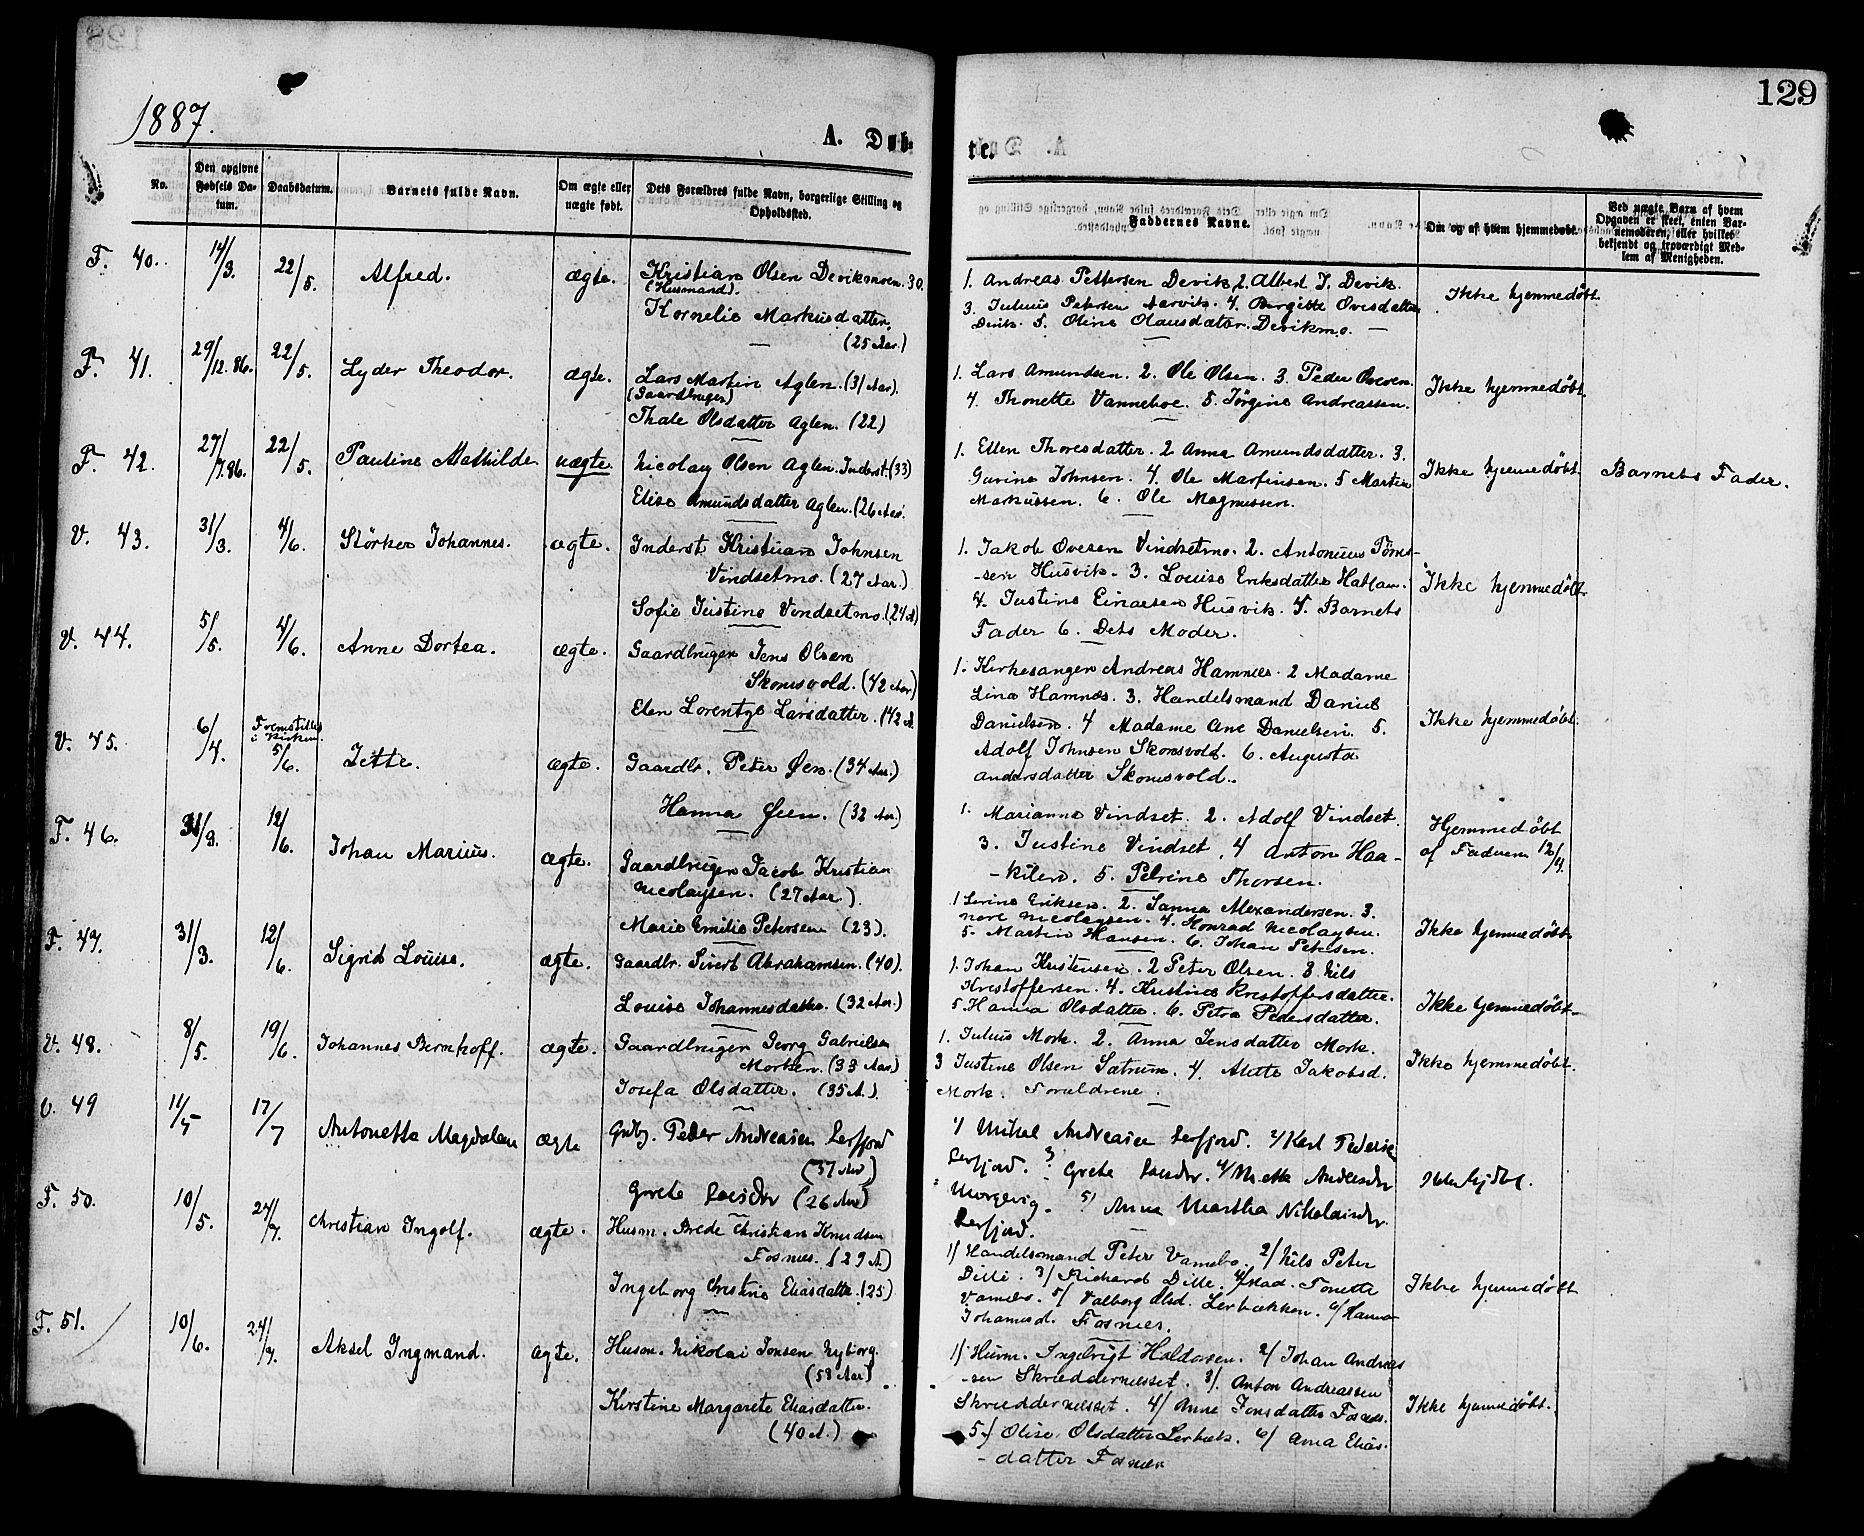 129
1887.
A. Døb-
te.
No.
Den opgivne Fødsels Datum.
Daabsdatum.
Barnets fulde Navn.
Om ægte eller uægte født.
Dets Forældres fulde Navn, borgerlige Stilling og Opholdssted.
Faddernes Navne.
Om og af hvem hjemmedøbt.
Ved uægte Barn af hvem Opgaven er skeet, enten Barnemoderen, eller hvilket bekjendt og troværdigt Medlem af Menigheden.
F. 40. 14/3. 22/5. Alfred. ægte.
Kristian Olsen Devikmoen. 30.
(Husmand).
Kornelia Markusdatter.
(25 Aar.)
1. Andreas Pettersen Devik 2. Albert J. Devik.
3. Julius Petersen Aarvik. 4. Birgitte Ovesdatter
Devik. 5. Oline Olausdatter. Devikmo.
Ikke hjemmedøbt.
F. 41. 29/12.86. 22/5. Lyder Theodor. ægte.
Lars Martin Aglen. (31 Aar).
(Gaardbruger)
Thale Olsdatter Aglen. (22)
1. Lars Amundsen. 2. Ole Olsen. 3. Peder Ovesen.
4. Thonette Vanneboe. 5. Jørgine Andreassen.
Ikke hjemmedøbt.
F. 42. 27/7.86. 22/5. Pauline Mathilde uægte.
Nicolay Olsen Aglen. Inderst (33)
Elise Amundsdatter Aglen. (26 Aar.
1. Ellen Thoresdatter. 2 Anna Amundsdatter. 3.
Gurine Johnsen. 4. Ole Marfinsen. 5 Martin
Markussen. 6. Ole Magnussen.
Ikke hjemmedøbt. Barnets Fader.
V. 43. 31/3. 4/6. Størker Johannes. ægte.
Inderst Kristian Johnsen
Vindsetmo. (27 Aar.)
Sofie Justine Vindsetmo. (24 A)
1. Jakob Ovesen Vindsetmo. 2. Antonius
-sen Husvik. 3. Louise Eriksdatter
4. Justine Einarsen Husvik. 5. Barnets
Fader 6. Dets Moder.
Ikke hjemmedøbt.
V. 44. 5/5. 4/6. Anne Dortea. ægte.
Gaardbruger Jens Olsen
Skomsvold. (42 Aar)
Elen Lorentze Larsdatter. (42 A.
1. Kirkesanger Andreas Hamnes. 2 Madame
Lina Hamnes. 3. Handelsmand Daniel
Danielsen. 4 Madame Ane Danielsen. 5.
Adolf Johnsen Skomsvold. 6. Augusta
Andersdatter Skomsvold.
Ikke hjemmedøbt.
V. 45. 6/4. Fremstillet
i Kirken
5/6. Jette. ægte.
Gaardbr. Peter Øen. (34 Aar.)
Hanna Øen. (32 Aar.)
1. Marianna Vindset. 2. Adolf Vindset.
3. Justine Vindset, 4 Anton Haa-
-kilen. 5. Petrine Thorsen.
Hjemmedøbt
af Faderen 12/4.
F. 46. 31/3. 12/6. Johan Marius. ægte.
Gaardbruger Jacob Kristian
Nicolaysen. (27 Aar).
Marie Emilie Petersen (23).
1 Serine Eriksen. 2. Sanna Alexandersen. 3.
Nicolaysen. 4. Konrad Nicolaysen.
5. Martin Hansen. 6. Johan Petersen.
Ikke hjemmedøbt.
F. 47. 31/3. 12/6. Sigrid Louise. ægte.
Gaardbr. Sivert Abrahamsen. (40).
Louise Johannesdatter. (32 Aar.)
1. Johan Kristensen. 2 Peter Olsen. 3. Nils
Kristoffersen. 4. Kristine Kristoffersdatter.
5. Hanna Olsdatter. 6. Petra Pedersdatter.
Ikke hjemmedøbt.
V. 48. 8/5. 19/6. Johannes Bernhoff. ægte.
Gaardbruger Georg Gabrielsen
Morken. (33 Aar)
Josefa Olsdatter. (35 A.).
1. Julius Mork. 2. Anna Jensdatter Mork.
3 Justine Olsen Sætrum. 4. Alette Jakobsd.
Mork. Forældrene.
Ikke hjemmedøbt.
V. 49 11/5 17/7 Antonette Magdalena ægte
Grdbg. Peder Andreasen Lerfjord
(37 Aar)
Grete Larsdtr (26 Aar)
1/ Mikal Andreasen Lerfjord. 2/ Karl Pedersen
Lerfjord. 3/ Grete Larsdtr. 4/ Mette Andersdtr
5/ Anna Martha Nikolaisdtr.
Lerfjord.
Ikke hjdbt.
F. 50. 10/5. 24/7. Christian Ingolf. ægte.
Husm. Brede Christian Knudsen
Fosnæs. (29 A.)
Ingeborg Christine Eliasdatter. (25)
1/ Handelsmand Peter Vannebo. 2/ Nils Peter
Dille. 3/ Richard Dille. 4/ Mad. Tonette
Vannebo. 5/ Valborg Olsd. Lerbækken. 6/ Hanna
Johannesd. Fosnæs.
Ikke hjemmedøbt
F. 51. 10/6. 24/7. Aksel Ingmand. ægte.
Husm. Nikolai Jonsen Nyborg.
(53 Aar)
Kirstine Margarete Eliasdatter.
(40 A.)
1/ Husm. Ingebrigt Haldorsen. 2/ Johan Andreas
-sen Skræddernesset. 3/. Anton Andreassen
Skræddernesset. 4/ Anne Jonsdatter Fosnæs.
5/ Olise Olsdatter Lerbæk. 6/ Anna Elias-
-datter Fosnæs
Ikke hjemmedøbt.